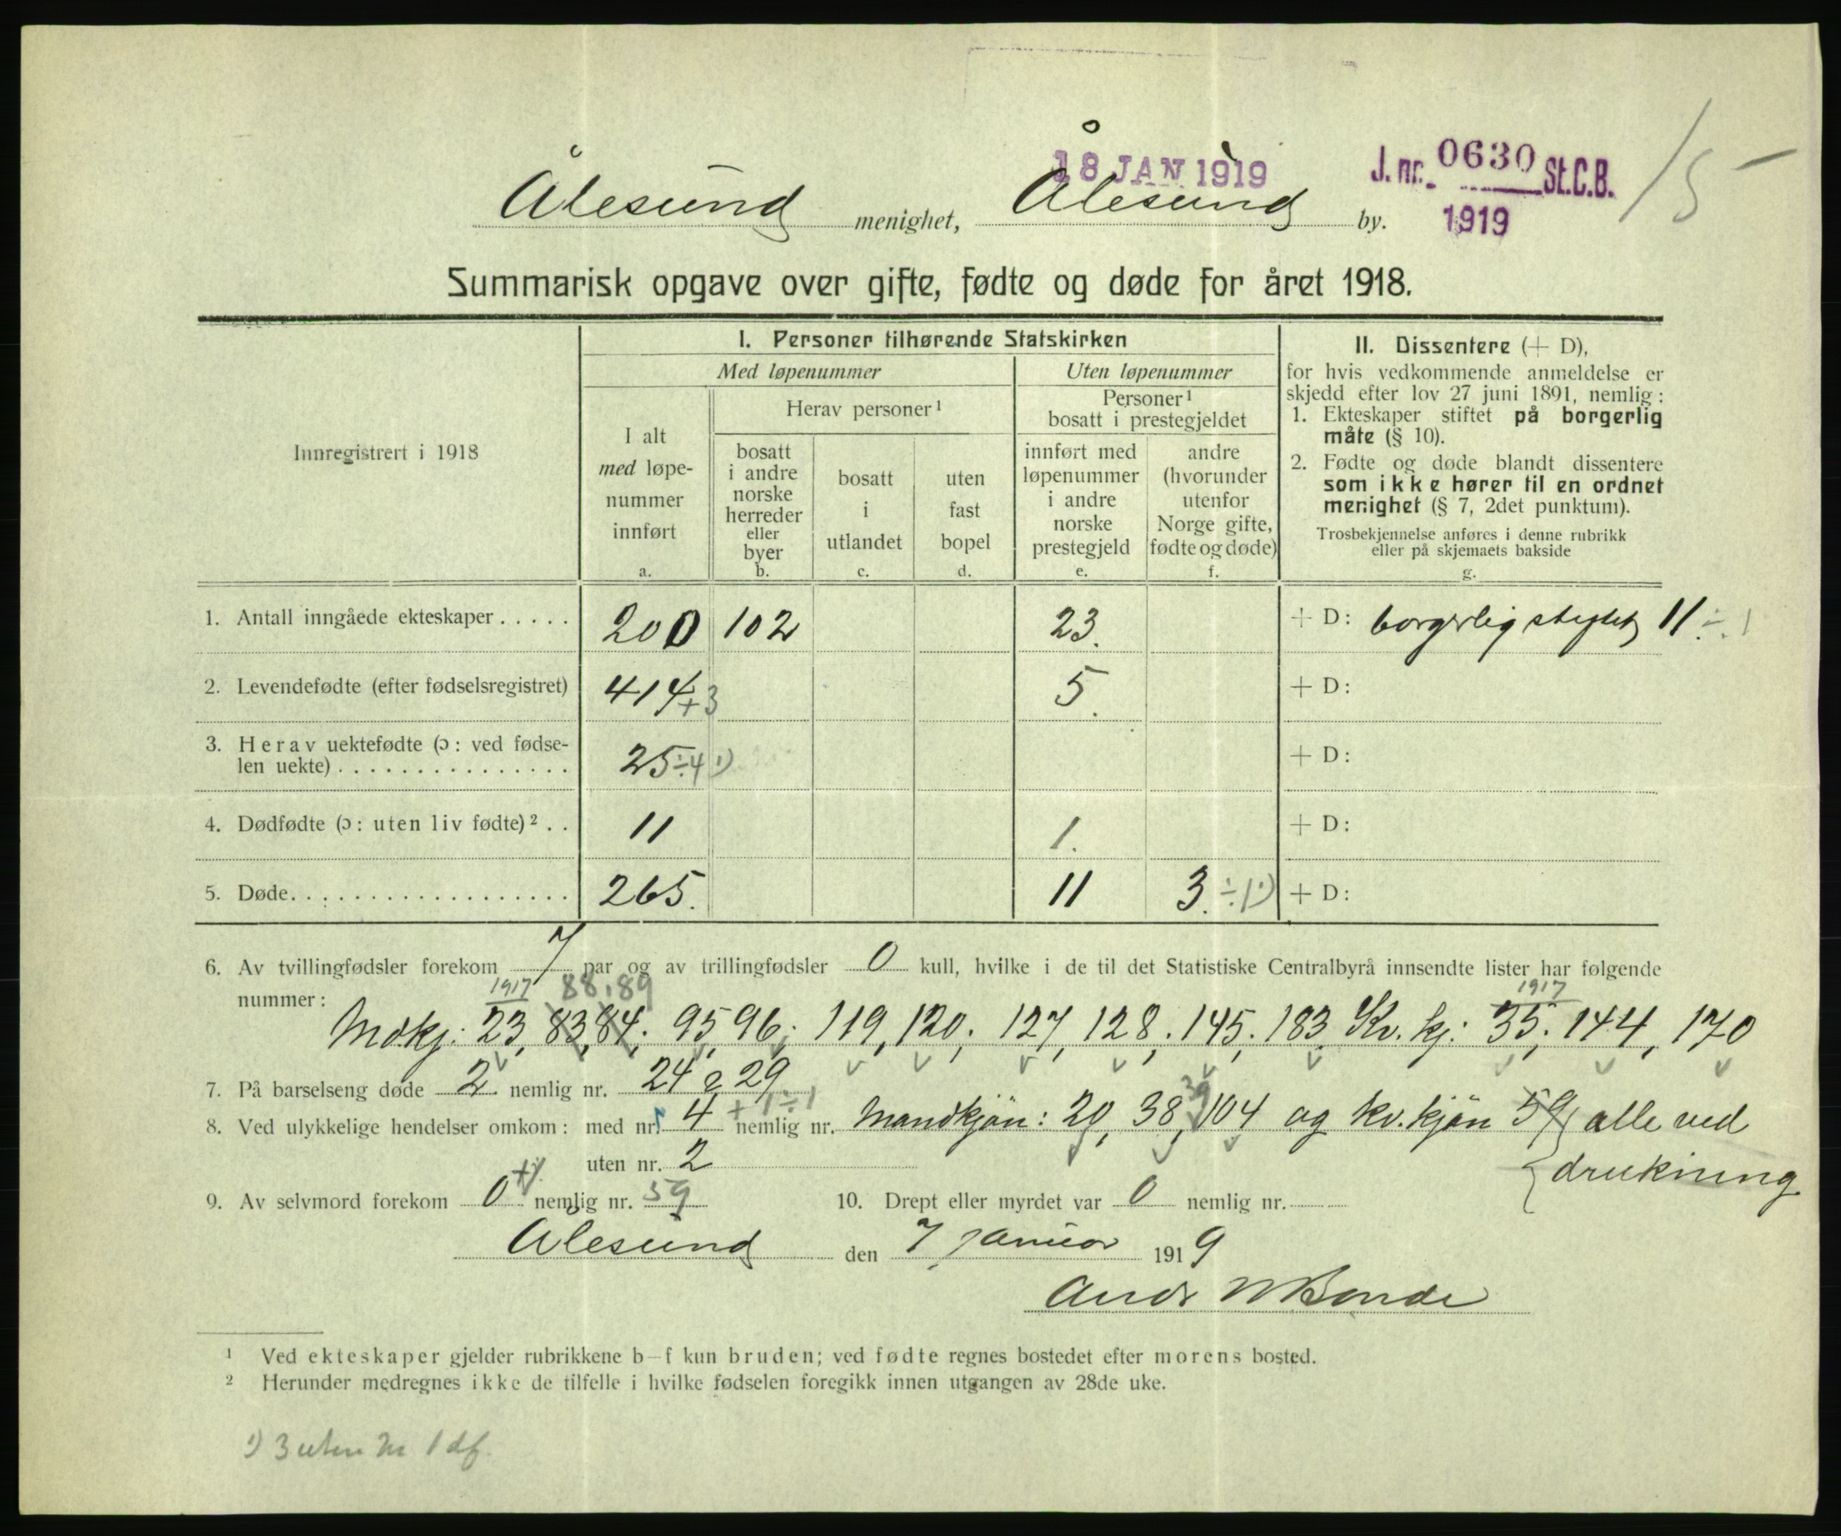 18 JAN 1919
J. nr. 0630 St.C.B.
1919
15
Ålesund menighet, Ålesund by.
Summarisk opgave over gifte, fødte og døde for året 1918.
Innregistrert i 1918
I. Personer tilhørende Statskirken
Med løpenummer
Uten løpenummer
I alt med løpenummer innført
a.
Herav personer ¹
bosatt i andre norske herreder eller byer
b.
bosatt i utlandet
c.
uten fast bopel
d.
Personer ¹ bosatt i prestegjeldet
innført med løpenummer i andre norske prestegjeld
e.
andre (hvorunder utenfor Norge gifte, fødte og døde)
f.
II. Dissentere (+ D),
for hvis vedkommende anmeldelse er
skjedd efter lov 27 juni 1891, nemlig:
1. Ekteskaper stiftet på borgerlig
måte (§ 10).
2. Fødte og døde blandt dissentere
som ikke hører til en ordnet
menighet (§ 7, 2det punktum).
Trosbekjennelse anføres i denne rubrikk
eller på skjemaets bakside
g.
1. Antall inngåede ekteskaper ..... 200 102 23. + D: borgerlig stiftet 11 ÷ 1
2. Levendefødte (efter fødselsregistret) 414 + 3 5. + D:
3. Herav uektefødte (ɔ: ved fødse-
len uekte) ............... 25 ÷ 4 ¹) + D:
4. Dødfødte (ɔ: uten liv fødte) ² .. 11 1. + D:
5. Døde .................. 265. 11 3. ÷ 1 ¹) + D:
6. Av tvillingfødsler forekom 7 par og av trillingfødsler 0 kull, hvilke i de til det Statistiske Centralbyrå innsendte lister har følgende
nummer: 1917 88,89 1917
Mdkj: 23, 83,84; 95,96; 119,120; 127,128; 145; 183. Kv. kj: 35; 144, 170
7. På barselseng døde 2 nemlig nr. 24 & 29
8. Ved ulykkelige hendelser omkom: med nr. 4 + 1 ÷ 1 nemlig nr. Mandkjön: 20, 38, 39 104 og kv. kjön 59 alle ved
uten nr. 2 drukning
9. Av selvmord forekom 0 + 1 nemlig nr. 59 10. Drept eller myrdet var 0 nemlig nr.
Ålesund den 7 januar 1919
Andr W Bonde
¹ Ved ekteskaper gjelder rubrikkene b–f kun bruden; ved fødte regnes bostedet efter morens bosted.
² Herunder medregnes ikke de tilfelle i hvilke fødselen foregikk innen utgangen av 28de uke.
¹) 3 uten nr 1 df.